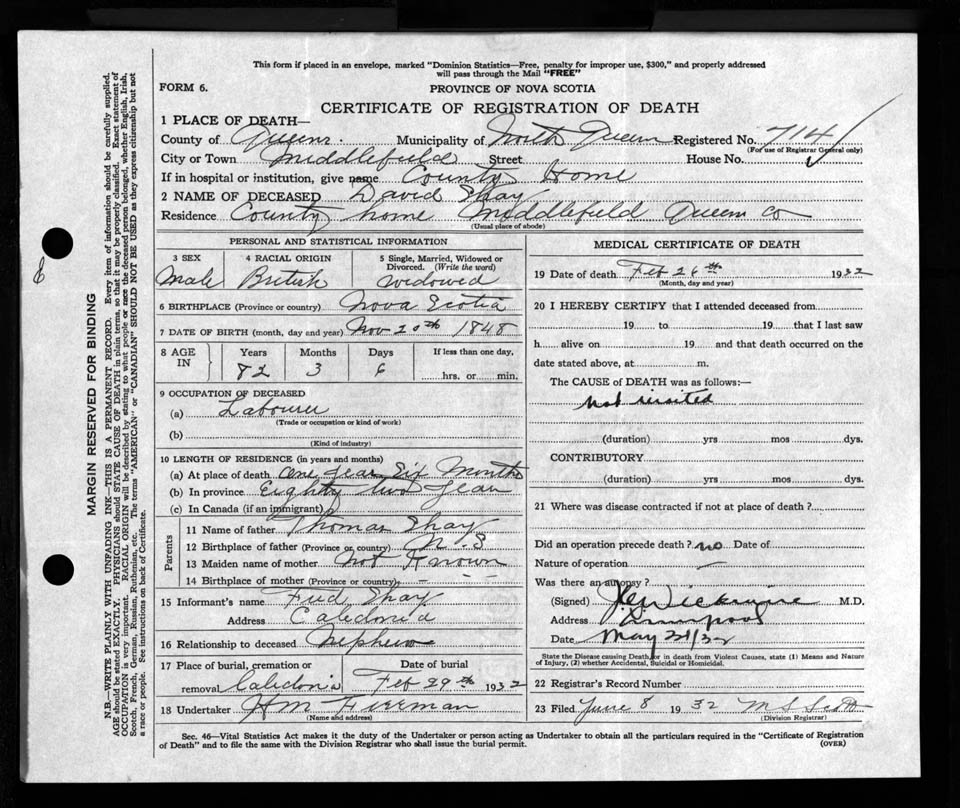 This form if placed in an envelope, marked "Dominion Statistics—Free, penalty for improper use, $300," and properly addressed
will pass through the Mail "FREE"
FORM 6.
PROVINCE OF NOVA SCOTIA
CERTIFICATE OF REGISTRATION OF DEATH
1 PLACE OF DEATH—
County of Queens. Municipality of North Queens Registered No. 714
(For use of Registrar General only)
City or Town Middlefield Street House No.
If in hospital or institution, give name County Home
2 NAME OF DECEASED David Shay
Residence County home Middlefield Queens Co
(Usual place of abode)
PERSONAL AND STATISTICAL INFORMATION
3 SEX Male
4 RACIAL ORIGIN British
5 Single, Married, Widowed or Divorced. (Write the word) widowed
6 BIRTHPLACE (Province or country) Nova Scotia
7 DATE OF BIRTH (month, day and year) Nov 20th 1848
8 AGE IN Years Months Days If less than one day,
82 3 6 hrs. or min.
9 OCCUPATION OF DECEASED
(a) Labourer
(Trade or occupation or kind of work)
(b)
(Kind of industry)
10 LENGTH OF RESIDENCE (in years and months)
(a) At place of death One year Six Months
(b) In province Eighty two years
(c) In Canada (if an immigrant)
Parents
11 Name of father Thomas Shay
12 Birthplace of father (Province or country) N. S
13 Maiden name of mother Not Known
14 Birthplace of mother (Province or country) – – –
15 Informant's name Fred Shay
Address Caledonia
16 Relationship to deceased Nephew
17 Place of burial, cremation or removal Caledonia
Date of burial Feb 29th 1932
18 Undertaker H M Freeman
(Name and address)
MEDICAL CERTIFICATE OF DEATH
19 Date of death Feb 26th 1932
(Month, day and year)
20 I HEREBY CERTIFY that I attended deceased from
19 to 19 that I last saw
h alive on 19 and that death occurred on the
date stated above, at m.
The CAUSE of DEATH was as follows:—
not visited
(duration) yrs mos dys.
CONTRIBUTORY
(duration) yrs mos dys.
21 Where was disease contracted if not at place of death?
Did an operation precede death? no Date of
Nature of operation —
Was there an autopsy?
(Signed) M.D.
Address
Date May 31/32
State the Disease causing Death, or in death from Violent Causes, state (1) Means and Nature
of Injury, (2) whether Accidental, Suicidal or Homicidal.
22 Registrar's Record Number
23 Filed June 8 1932 M S
(Division Registrar)
Sec. 46—Vital Statistics Act makes it the duty of the Undertaker or person acting as Undertaker to obtain all the particulars required in the "Certificate of Registration
of Death" and to file the same with the Division Registrar who shall issue the burial permit.
(OVER)
MARGIN RESERVED FOR BINDING
N.B.—WRITE PLAINLY WITH UNFADING INK—THIS IS A PERMANENT RECORD. Every item of information should be carefully supplied.
AGE should be stated EXACTLY. PHYSICIANS should STATE CAUSE OF DEATH in plain terms, so that it may be properly classified. Exact statement of
OCCUPATION is very important. RACIAL ORIGIN will be described by stating to what people or race the deceased person belonged, whether English, Irish,
Scotch, French, German, Russian, Ruthenian, etc. The terms "AMERICAN" or "CANADIAN" SHOULD NOT BE USED as they express citizenship but not
a race or people. See instructions on back of Certificate.